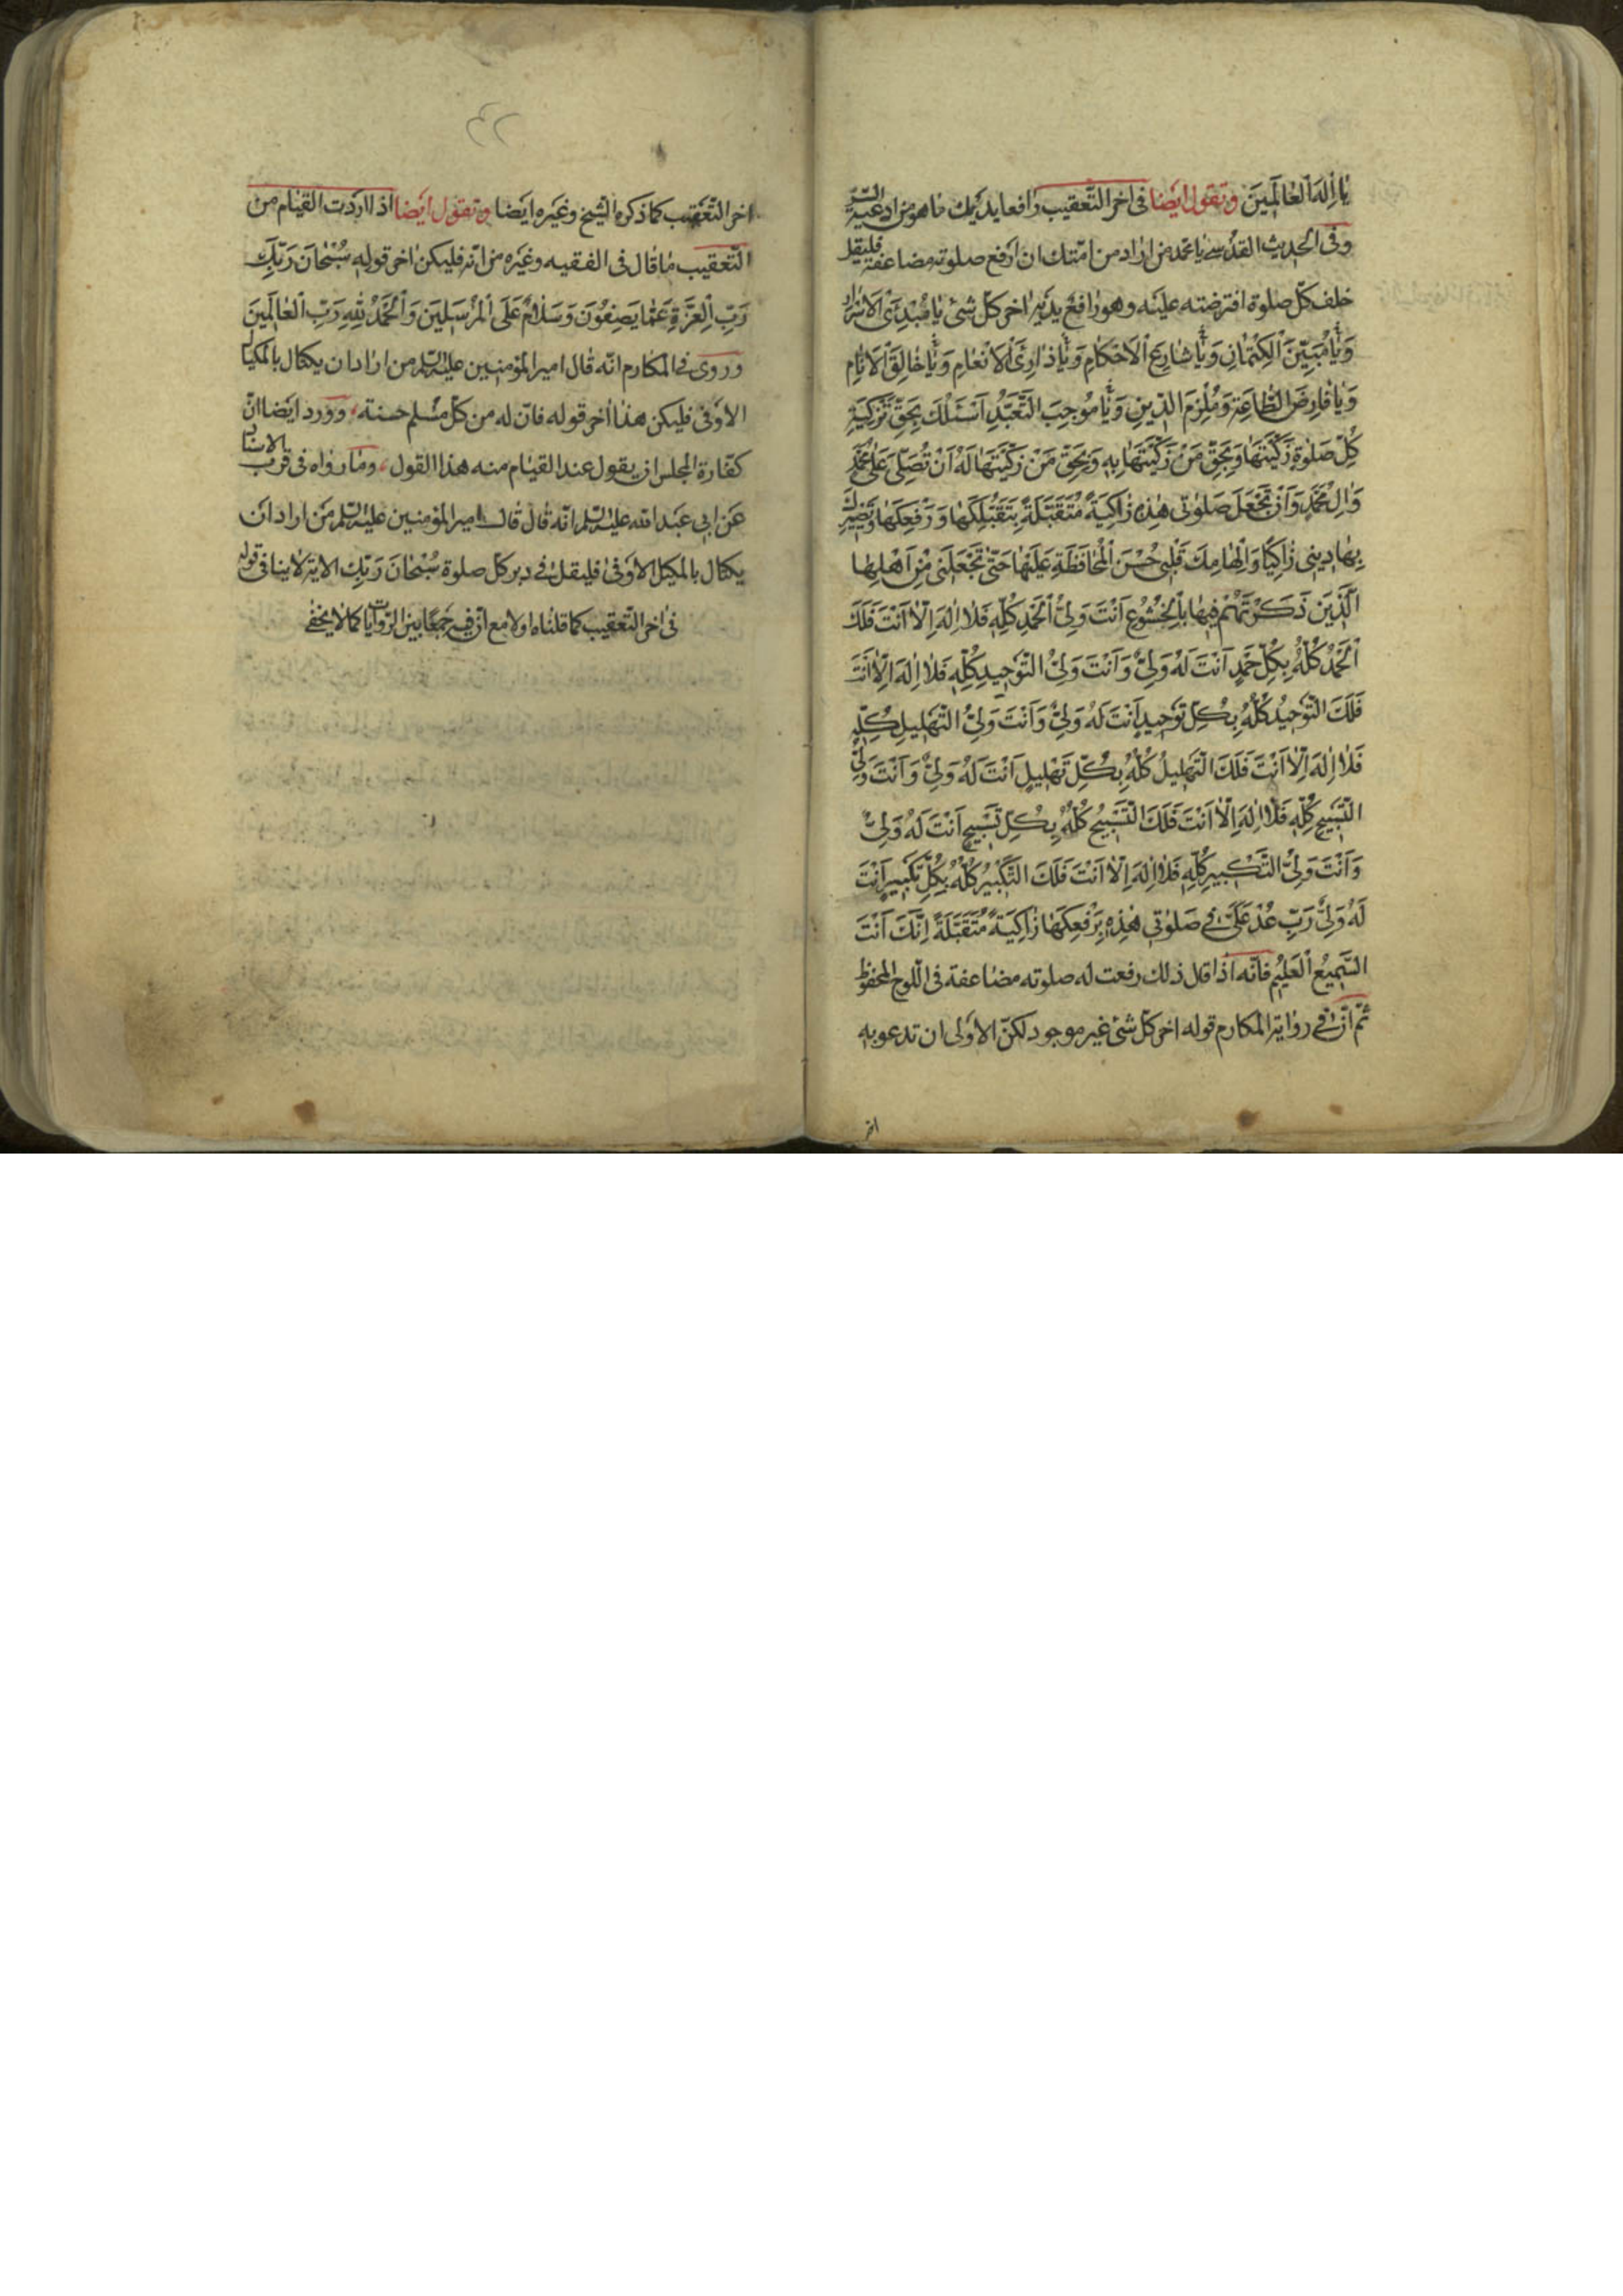 يا اِلٰهَ الْعالَمِينَ وتقول ايضا فى اخر التّعقيب رافعا يديك ما هو من ادعية السّرّ
وفى الحديث القدسى يا محمّد من اراد من امّتك ان ارفع صلوته مضاعفة فليقل
خلف كلّ صلوة افترضته عليه وهو رافع يديه اخر كلّ شئ يا مُبْدِئَ الْاَسْرارِ
وَيا مُبَيِّنَ الْكِتْمانِ وَيا شارِعَ الْاَحْكامِ وَيا ذارِئَ الْاَنْعامِ وَيا خالِقَ الْاَنامِ
وَيا فارِضَ الطّاعَةِ وَمُلْزِمَ الدّينِ وَيا مُوجِبَ التَّعَبُّدِ اَسْئَلُكَ بِحَقِّ تَزْكِيَةِ
كُلِّ صَلٰوةٍ زَكَّيْتَها وَبِحَقِّ مَنْ زَكَّيْتَها بِهِ وَبِحَقِّ مَنْ زَكَّيْتَها لَهُ اَنْ تُصَلِّىَ عَلٰى مُحَمَّدٍ
وَاٰلِ مُحَمَّدٍ وَاَنْ تَجْعَلَ صَلٰوتى هٰذِهِ زاكِيَةً مُتَقَبَّلَةً بِتَقَبُّلِكَها وَرَفْعِكَها وَتَصْيِيرِكَ
بِها دينى زاكِيًا وَاِلْهامِكَ قَلْبى حُسْنَ الْمُحافَظَةِ عَلَيْها حَتّٰى تَجْعَلَنى مِنْ اَهْلِها
الَّذينَ ذَكَرْتَهُمْ فيها بِالْخُشُوعِ اَنْتَ وَلِىُّ الْحَمْدِ كُلِّهِ فَلا اِلٰهَ اِلّا اَنْتَ فَلَكَ
الْحَمْدُ كُلُّهُ بِكُلِّ حَمْدٍ اَنْتَ لَهُ وَلِىٌّ وَاَنْتَ وَلِىُّ التَّوْحيدِ كُلِّهِ فَلا اِلٰهَ اِلّا اَنْتَ
فَلَكَ التَّوْحيدُ كُلُّهُ بِكُلِّ تَوْحيدٍ اَنْتَ لَهُ وَلِىٌّ وَاَنْتَ وَلِىُّ التَّهْليلِ كُلِّهِ
فَلا اِلٰهَ اِلّا اَنْتَ فَلَكَ التَّهْليلُ كُلُّهُ بِكُلِّ تَهْليلٍ اَنْتَ لَهُ وَلِىٌّ وَاَنْتَ وَلِىُّ
التَّسْبيحِ كُلِّهِ فَلا اِلٰهَ اِلّا اَنْتَ فَلَكَ التَّسْبيحُ كُلُّهُ بِكُلِّ تَسْبيحٍ اَنْتَ لَهُ وَلِىٌّ
وَاَنْتَ وَلِىُّ التَّكْبيرِ كُلِّهِ فَلا اِلٰهَ اِلّا اَنْتَ فَلَكَ التَّكْبيرُ كُلُّهُ بِكُلِّ تَكْبيرٍ اَنْتَ
لَهُ وَلِىٌّ رَبِّ عُدْ عَلَىَّ فى صَلٰوتى هٰذِهِ بِرَفْعِكَها زاكِيَةً مُتَقَبَّلَةً اِنَّكَ اَنْتَ
السَّميعُ الْعَليمُ فانّه اذا قل ذلك رفعت له صلوته مضاعفة فى اللّوح المحفوظ
ثم انّ فى رواية المكارم قوله اخر كلّ شئ غير موجود لكنّ الاولى ان تدعو به
اخر
٤٢
اخر التّعقيب كما ذكره الشيخ وغيره ايضا وتقول ايضا اذا اردت القيام من
التّعقيب ما قال فى الفقيه وغيره من انّه فليكن اخر قوله سُبْحانَ رَبِّكَ
رَبِّ الْعِزَّةِ عَمّا يَصِفُونَ وَسَلامٌ عَلَى الْمُرْسَلينَ وَالْحَمْدُ لِلّٰهِ رَبِّ الْعالَمينَ
وروى فى المكارم انّه قال امير المؤمنين عليه السلم من اراد ان يكتال بالمكيال
الاوفى فليكن هذا اخر قوله فانّ له من كلّ مسلم حسنة، وورد ايضا انّ
كفّارة المجلس ان يقول عند القيام منه هذا القول، وما رواه فى قرب الاسناد
عن ابى عبد الله عليه السلم انّه قال قال امير المؤمنين عليه السلم من اراد ان
يكتال بالمكيل الاوفى فليقل فى دبر كل صلوة سُبْحانَ رَبِّكَ الاية لا ينافى قوله
فى اخر التّعقيب كما قلناه اولا مع انّ فيه جمعًا بين الرّوايات كما لا يخفى